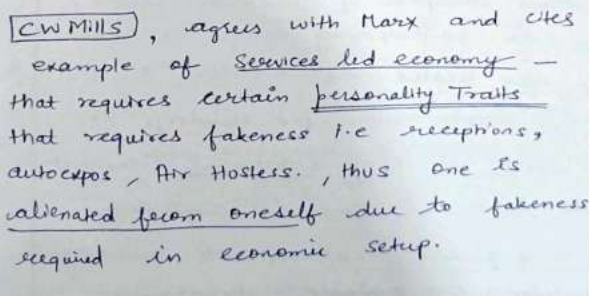 CW Mills, agrees with Marx and cites
example of Services led economy –
that requires certain personality Traits
that requires fakeness i.e receptions,
autoexpos, Air Hostess. , thus one is
alienated from oneself due to fakeness
required in economic setup.